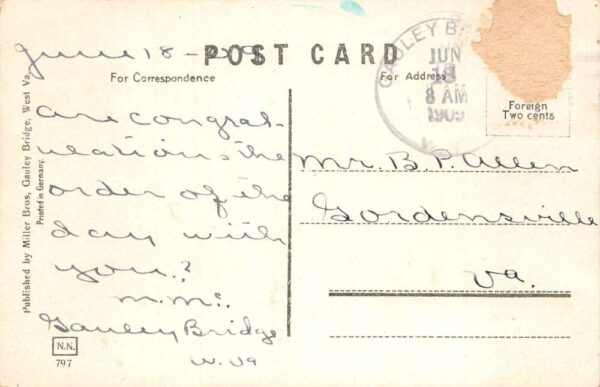 June 18-09
POST CARD
For Correspondence
For Address
GAULEY B
JUN
18
8 AM
1909
Foreign
Two cents
are congrat-
ulations the
order of the
day with
you?
M.Mc.
Gauley Bridge
W.Va
Mr. B. P. Allen
Gordensville
Va.
Published by Miller Bros, Gauley Bridge, West Va.
Printed in Germany.
N.N.
797